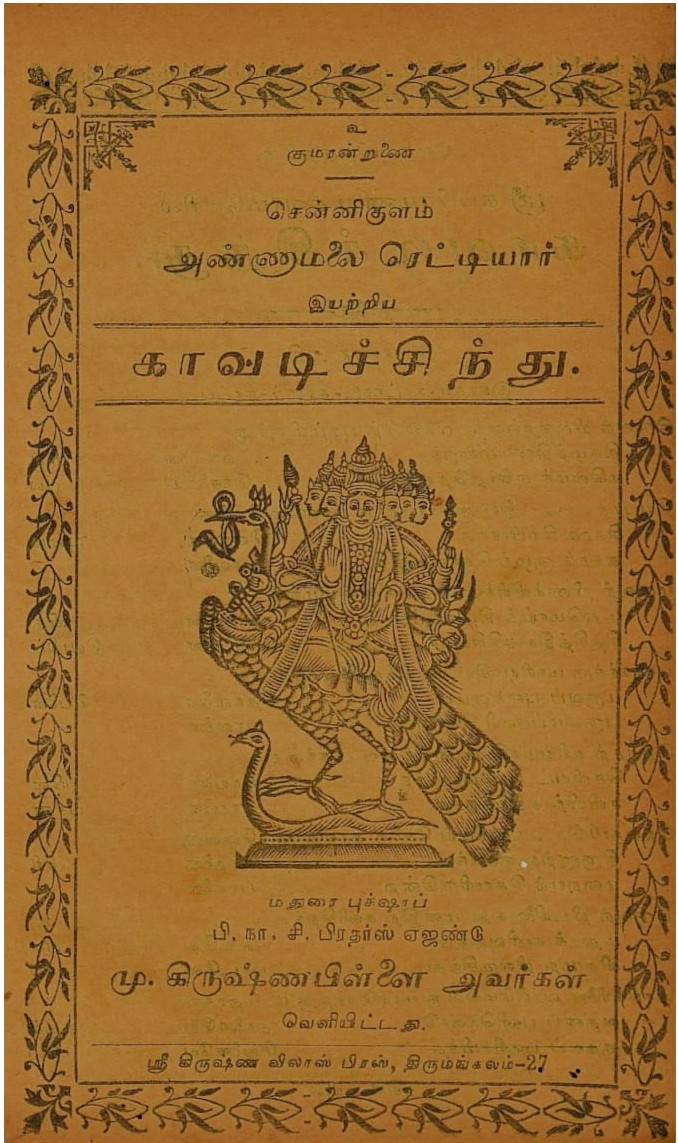 உ
குமரன்றுணை
சென்னிகுளம்
அண்ணாமலை ரெட்டியார்
இயற்றிய
காவடிச்சிந்து.
ஓம்
மதுரை புக்ஷாப்
பி. நா. சி. பிரதர்ஸ் ஏஜண்டு
மு. கிருஷ்ணபிள்ளை அவர்கள்
வெளியிட்டது.
ஸ்ரீ கிருஷ்ண விலாஸ் பிரஸ், திருமங்கலம்—27